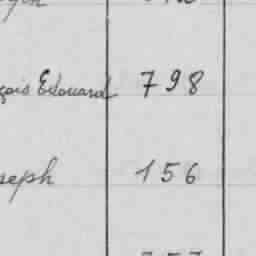 çois Edouard 798
seph 156